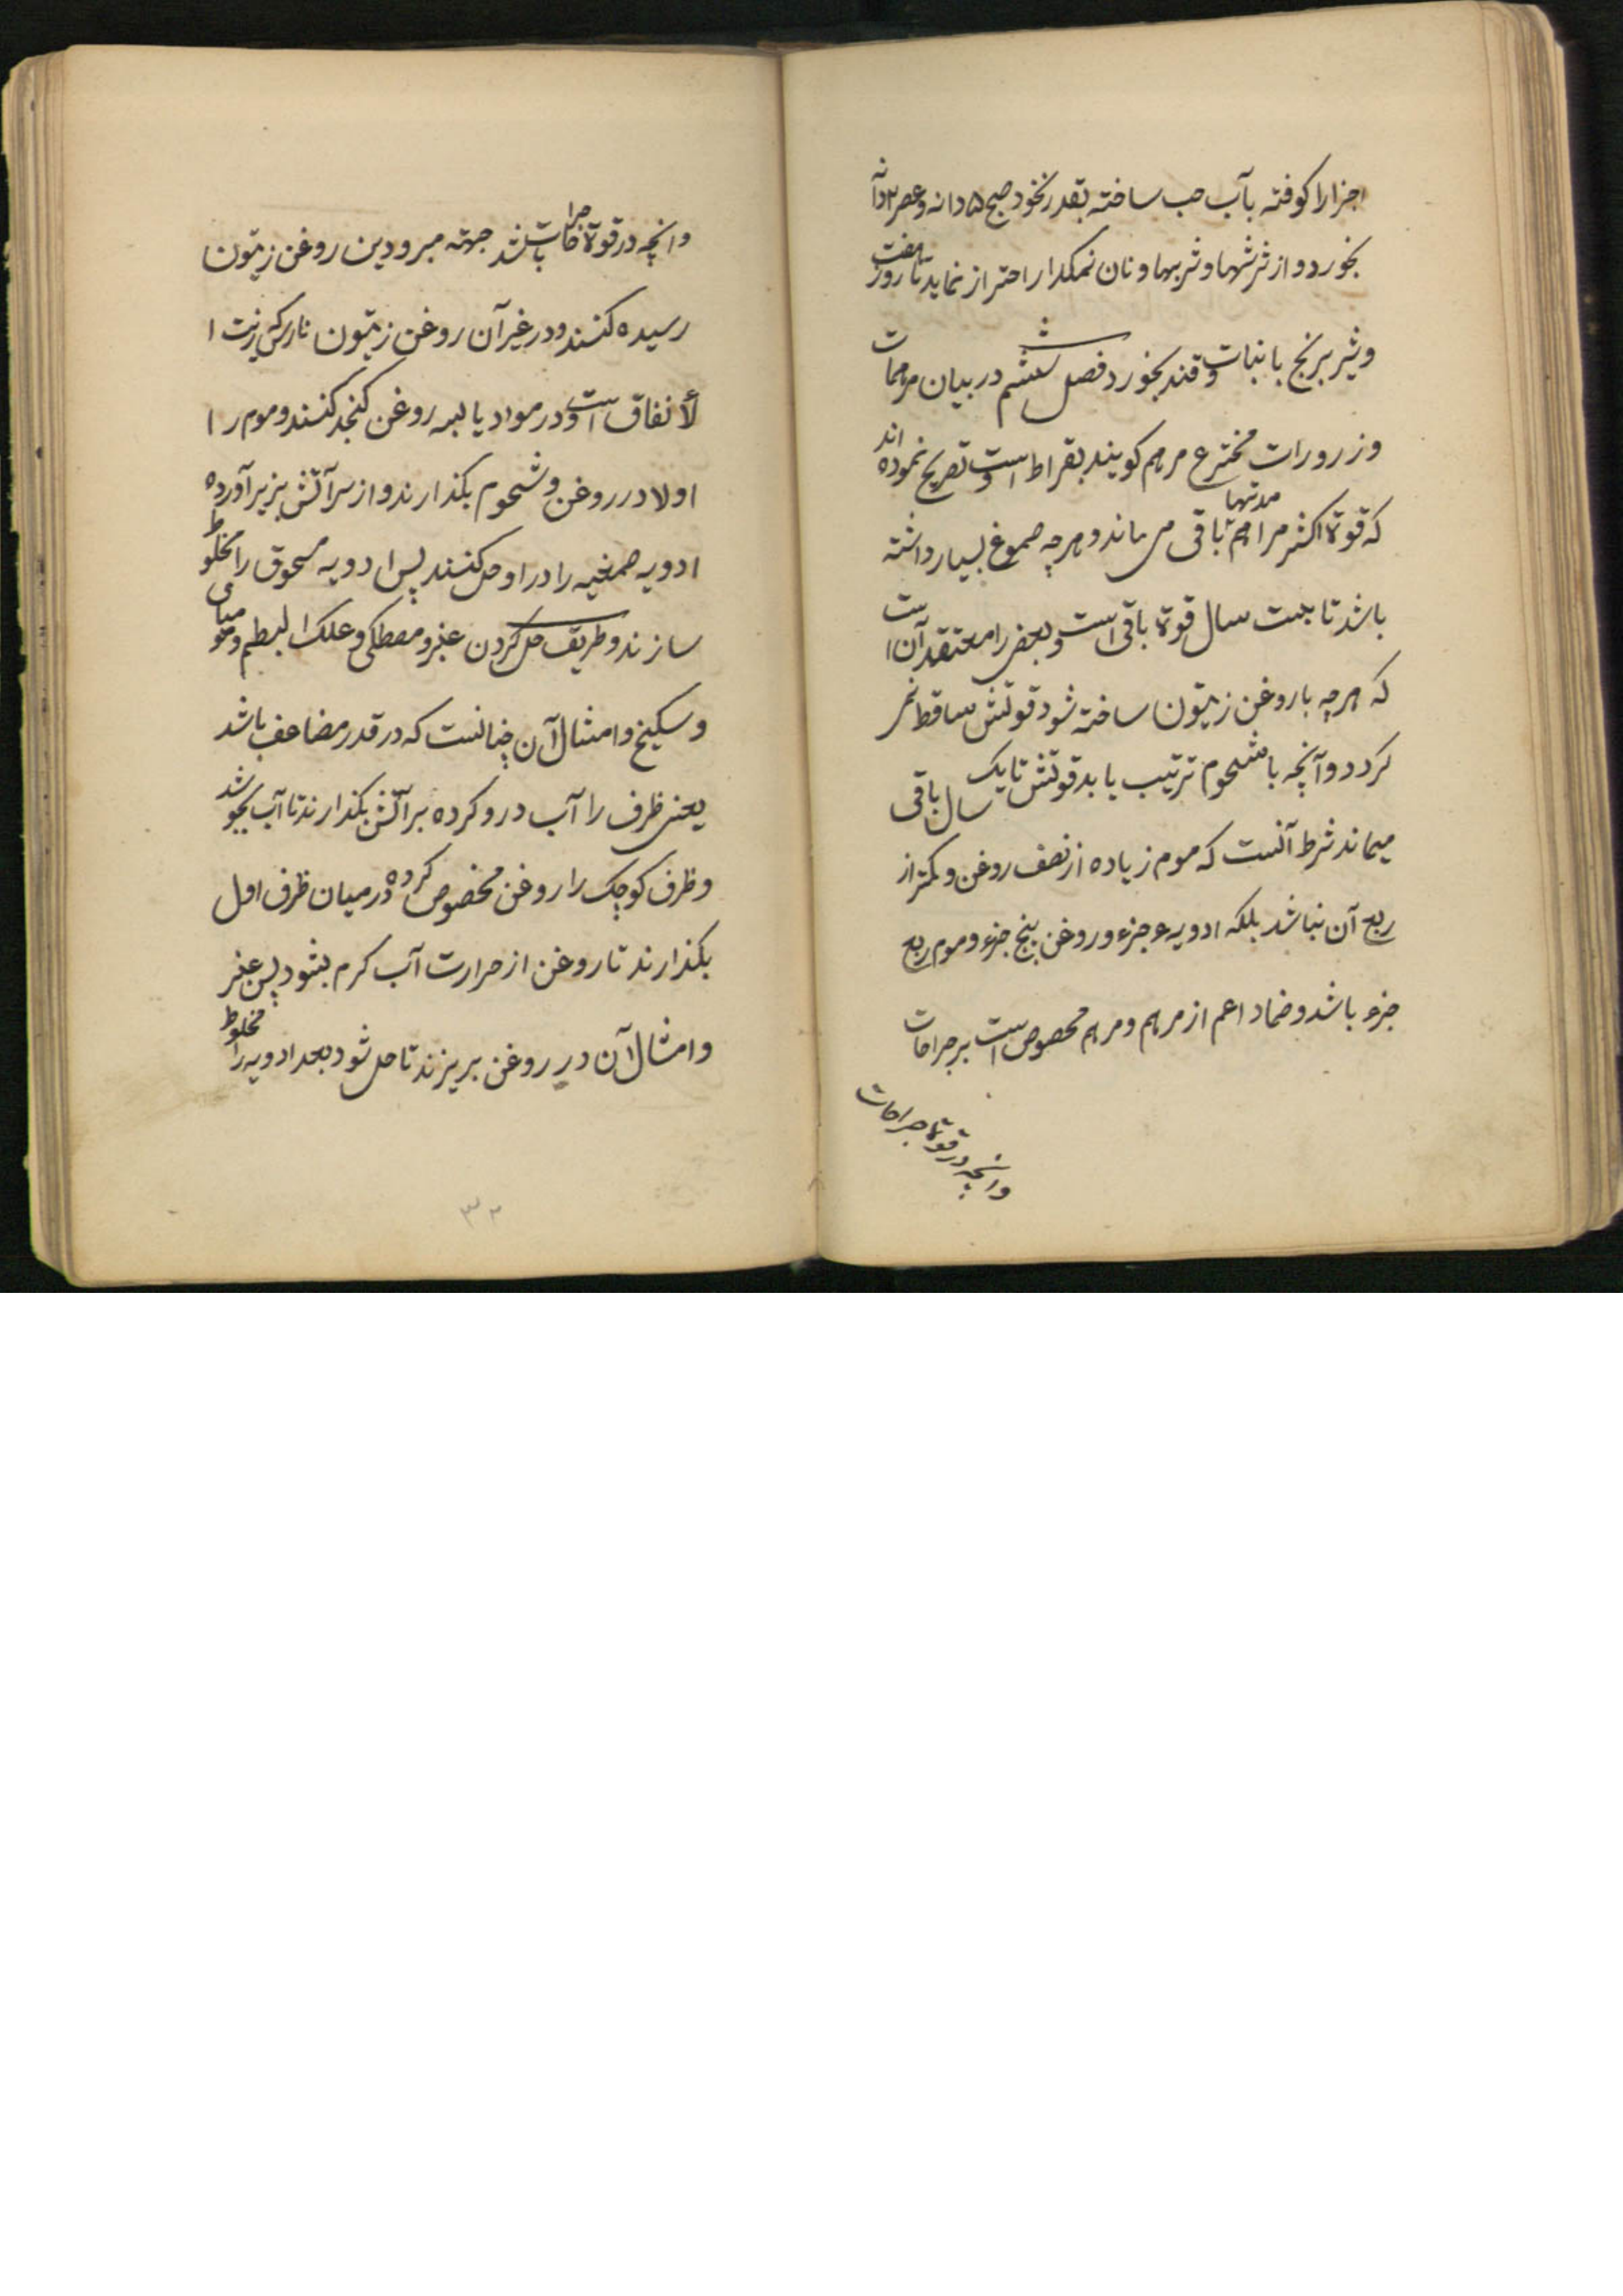 اجزا را کوفته بآب حب ساخته بقدر نخود صبح ۵ دانه و عصر ۲ دانه
بخورد و از ترشیها و تربیها و نان نمکدار احتراز نماید تا هفت روز
و شیر برنج با نبات و قند بخورد فصل ششم در بیان مرهمات
و زرورات مخترع مرهم کویند بقراط است و تصریح نموده اند
که قوة اکثر مراهم مدتها باقی می ماند و هرچه صموغ بسیار داشته
باشد تا بیست سال قوة باقی است و بعضی را معتقد آن است
که هرچه با روغن زیتون ساخته شود قوتش ساقط نمی
کردد و آنچه با شحوم ترتیب یابد قوتش تا یک سال باقی
میماند شرط آنست که موم زیاده از نصف روغن و کمتر از
ربع آن نباشد بلکه ادویه ۶ جزء و روغن پنج جزء و موم ربع
جزء باشد و ضماد اعم از مرهم و مرهم مخصوص است بر جراحات
وانچه در قوة جراحات
وانچه در قوة جراحات باشند جهته مبرودین روغن زیتون
رسیده کنند و در غیر آن روغن زیتون نارس که زیت ا
لأنفاق است و در مواد یابسه روغن کنجد کنند و موم را
اولا در روغن و شحوم بکذارند و از سر آتش بزیر آورده
ادویه صمغیه را در او حل کنند پس ادویه مسحوق را مخلوط
سازند و طریق حل کردن عنبر و مصطکی و علک البطم و مومیای
و سکبینج و امثال آن چنانست که در قدر مضاعف باشد
یعنی ظرف را آب درو کرده بر آتش بکذارند تا آب بجوشد
و ظرف کوچک را روغن مخصوص کرده در میان ظرف اول
بکذارند تا روغن از حرارت آب کرم بشود پس عنبر
و امثال آن در روغن بریزند تا حل شود بعد ادویه را مخلوط
۳۲